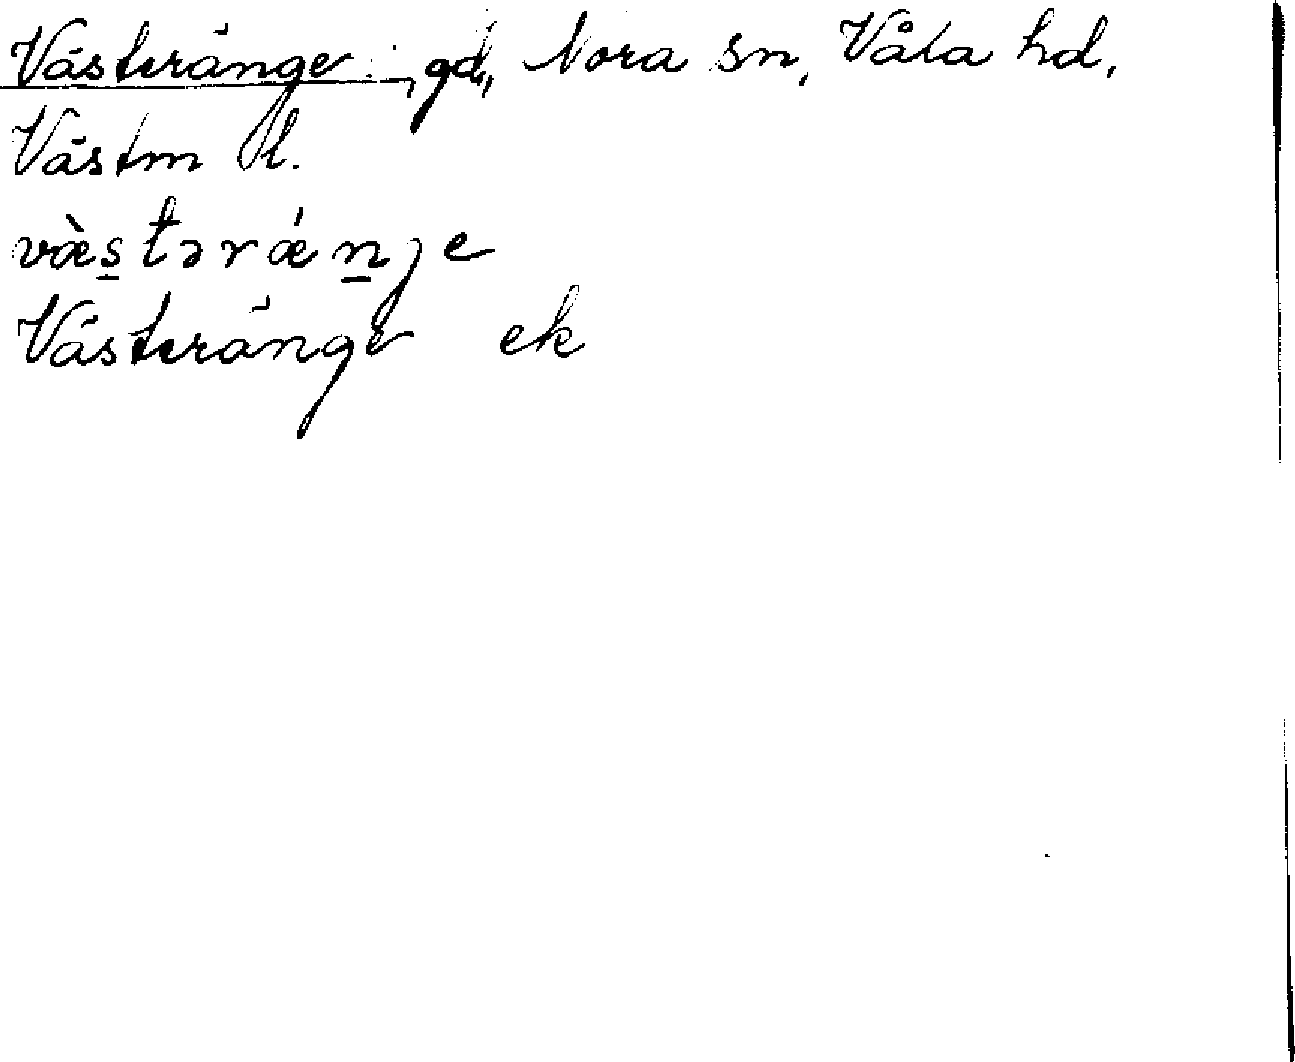 Västeränge, gd, Nora sn, Våla hd,
Västm l.
væ̀s̲tərǽn̲je
Västeränge ek